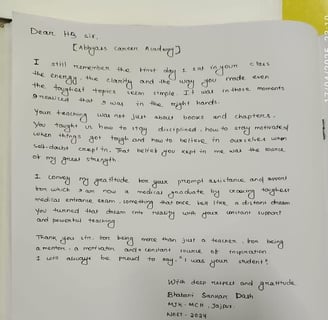 Dear HQ sir,
[Abhyaas Career Academy]
I still remember the first day I sat in your class
the energy, the clarity and the way you made even
the toughest topics seem simple. It was in those moments
I realized that I was in the right hands.
Your teaching was not just about books and chapters.
You taught us how to stay disciplined, how to stay motivated
when things got tough and how to believe in ourselves when
self-doubt crept in. That belief you kept in me was the source
of my great strength
I convey my gratitude for your prompt assistance and support
for which I am now a medical graduate by cracking toughest
medical entrance exam. something that once felt like a distant dream
You turned that dream into reality with your constant support
and powerful teaching.
Thank you sir, for being more than just a teacher, for being
a mentor, a motivator and a constant source of inspiration
I will always be proud to say, "I was your student".
With deep respect and gratitude
Bhabani Sankar Dash
MCH, Jajpur.
NEET - 2024